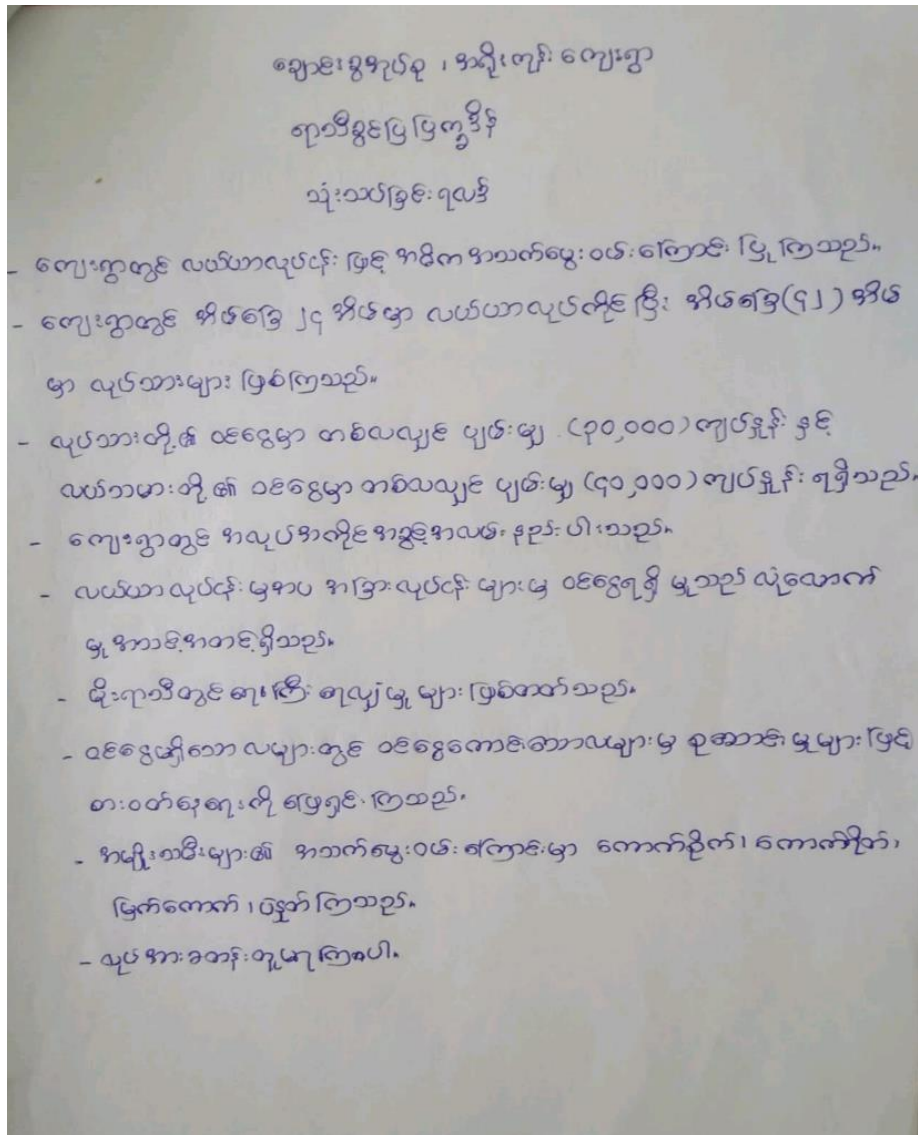 ချောင်းခွအုပ်စု ၊ အရိုးကုန်း ကျေးရွာ
ရာသီခွင်ပြ ပြက္ခဒိန်
သုံးသပ်ခြင်း ရလဒ်
- ကျေးရွာတွင် လယ်ယာလုပ်ငန်း ဖြင့် အဓိက အသက်မွေးဝမ်းကြောင်း ပြုကြသည်။
- ကျေးရွာတွင် အိမ်ခြေ ၂၄ အိမ်မှာ လယ်ယာလုပ်ကိုင်ပြီး အိမ်ခြေ(၄၂) အိမ်
မှာ လုပ်သားများ ဖြစ်ကြသည်။
- လုပ်သားတို့၏ ဝင်ငွေမှာ တစ်လလျှင် ပျမ်းမျှ (၃၀,၀၀၀) ကျပ်နှုန်း နှင့်
လယ်သမားတို့၏ ဝင်ငွေမှာ တစ်လလျှင် ပျမ်းမျှ (၄၀,၀၀၀) ကျပ်နှုန်း ရရှိသည်။
- ကျေးရွာတွင် အလုပ်အကိုင်အခွင့်အလမ်း နည်းပါးသည်။
- လယ်ယာလုပ်ငန်း မှအပ အခြားလုပ်ငန်း များမှ ဝင်ငွေရရှိ မှုသည် လုံလောက်
မှု အသင့်အတင့်ရှိသည်။
- မိုးရာသီတွင် ရေကြီး ရေလျှံမှု များဖြစ်တတ်သည်။
- ဝင်ငွေမရှိသော လများတွင် ဝင်ငွေကောင်းသောလများမှ စုဆောင်းမှုများဖြင့်
စားဝတ်နေရေးကို ဖြေရှင်းကြသည်။
- အမျိုးသမီးများ၏ အသက်မွေးဝမ်းကြောင်းမှာ ကောက်စိုက်၊ ကောက်ရိတ်၊
မြက်ကောက် ၊ ပဲနှုတ်ကြသည်။
- လုပ်အားခတန်းတူမရကြပေ။